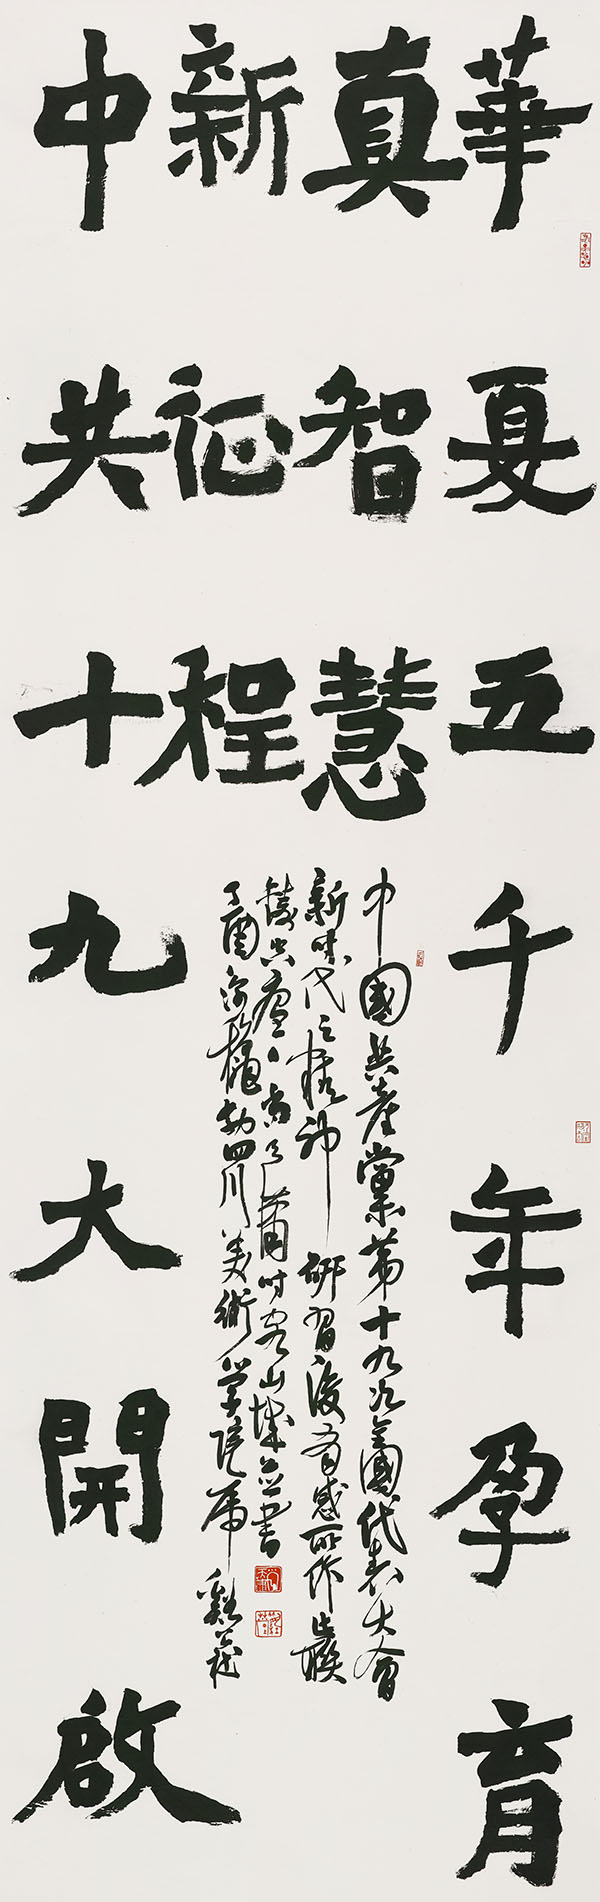 華夏五千年孕育
真智慧
中共十九大開啟
新征程
中國共產黨第十九次全國代表大會
新時代之精神研習後有感所作此聯
時客山城並書
丁酉 四川美術學院